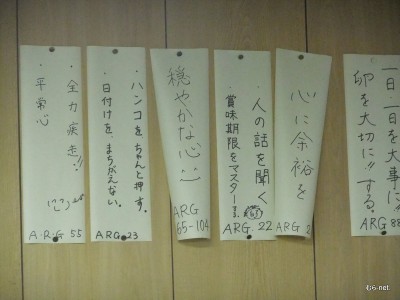 ・全力疾走!!
・平常心
A・R・G 55
・ハンコをちゃんと押す。
・日付けを、まちがえない。
ARG 23
穏やかな心
ARG
65-104
・人の話を聞く
・賞味期限をマスターする。
ARG. 22
心に余裕を
ARG 2
一日一日を大事に
卵を大切に!!する。
ARG 88
©6.net